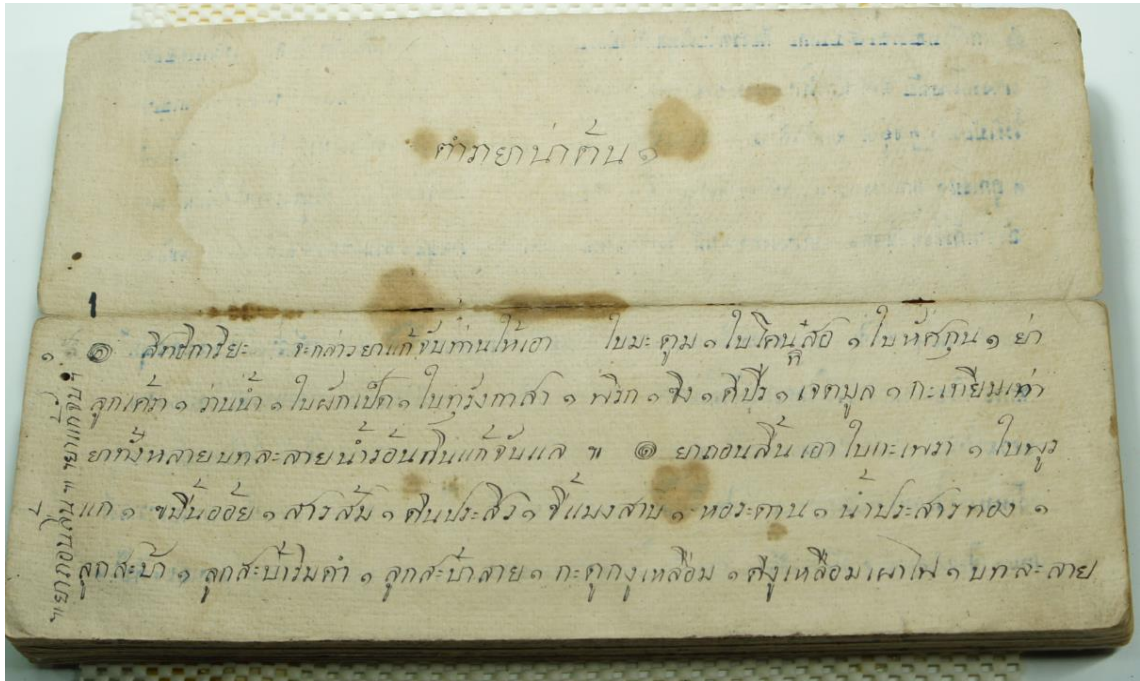 ตำรายาน่าต้น ๑
1
๏ สิทธิการิยะ จะกล่าวยาแก้จับท่านให้เอา ใบมะตูม ๑ ใบโคนดีสอ ๑ ใบหัศกุน ๑ ย่า
ลูกเค้า ๑ ว่านน้ำ ๑ ใบผักเป็ด ๑ ใบทรังกาสา ๑ พริก ๑ ขิง ๑ ดีปรี ๑ เจตมูล ๑ กะเทียมเท่า
ยาทังหลายบทละลายน้ำร้อนกินแก้จับแล ฯ ๏ ยาถอนสิ้น เอา ใบกะเพรา ๑ ใบพูร
แก ๑ ขมิ้นอ้อย ๑ สารส้ม ๑ ดินประสิว ๑ ขี้แมงสาบ ๑ หอระดาน ๑ น้ำประสารทอง ๑
ลูกสะบ้า ๑ ลูกสะบ้าริมดำ ๑ ลูกสะบ้าลาย ๑ กะดูกงูเหลือม ๑ ดีงูเหลือมเผาไฟ ๑ บทละลาย
ยาแก้จับ